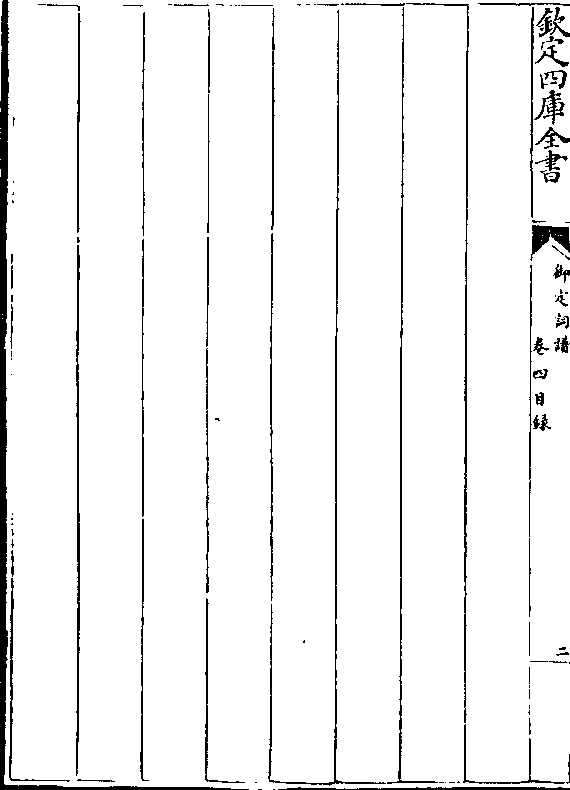 欽定四庫全書
御定詞譜
卷四目録
二